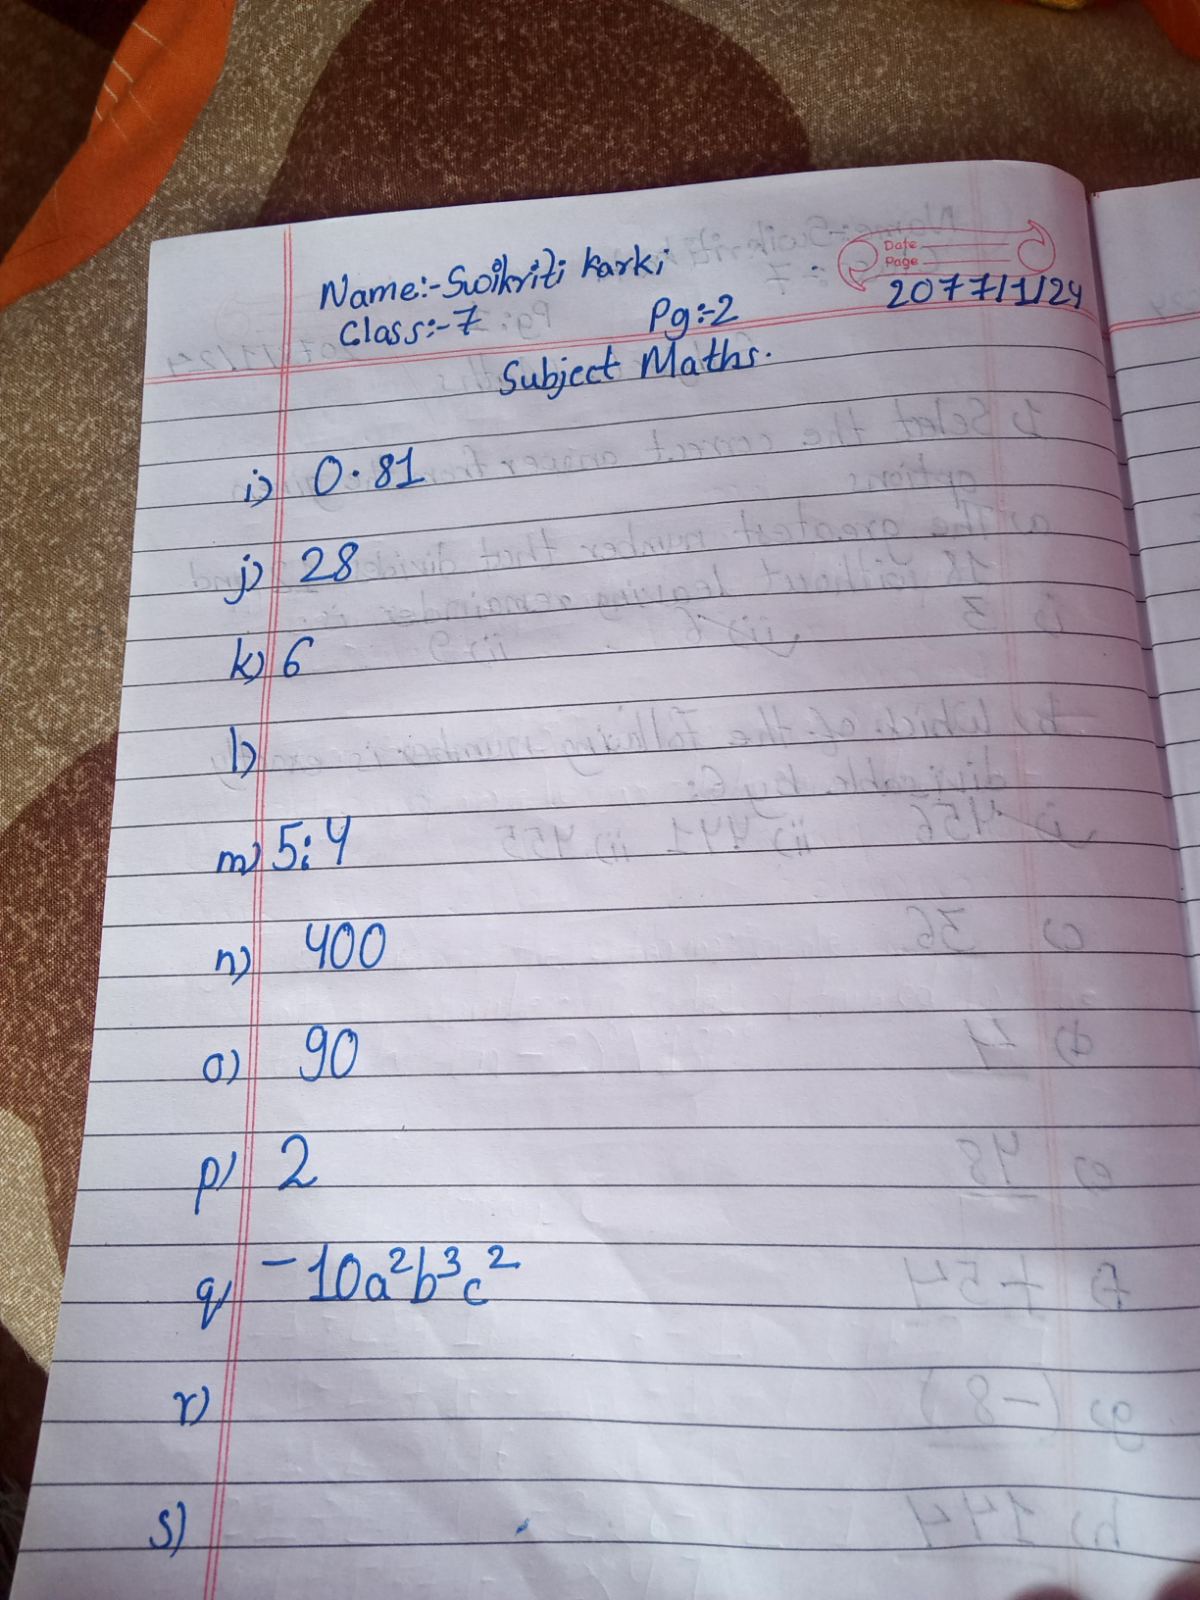 Name:- Swikriti Karki
Class:- 7
Pg:-2
Date
Page
2077/1/24
Subject Maths.
i) 0.81
j) 28
k) 6
l)
m) 5:4
n) 400
o) 90
p) 2
q) -10a²b³c²
r)
s)